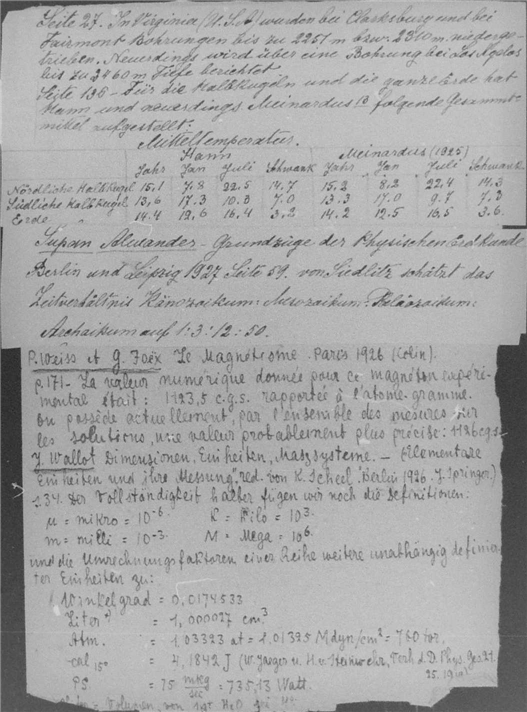 Seite 27. In Virginia (U.S.A) wurden bei Clarksburg und bei
Fairmont Bohrungen bis zu 2251 m bzw. 2310 m niederge-
trieben. Neuerdings wird über eine Bohrung bei Los Ageles
bis zu 2460 m Tiefe berichtet.
Seite 136 - Für die Halbkugeln und die ganze Erde hat
Hann und neuerdings Meinardus folgende Gesammt-
mittel aufgestellt:
Mitteltemperatur.
Hann Meinardus (1925)
Jahr Jan Juli Schwank Jahr Jan Juli Schwank
Nördliche Halbkugel 15,1 7.8 22,5 14.7 15.2 8.2 22.4 14.3
Südliche Halbkugel 13,6 17.3 10.3 7.0 13.3 17.0 9.7 7.3
Erde " 14.4 12.6 16.4 3,2 14.2 12.5 16,5 3.6
Supan Alexander - Grundzüge der Physischen Erd Kunde
Berlin und Leipzig 1927 Seite 59. von Siedlitz schätzt das
Zeitverhältnis Känozaikum: Mesozaikum: Paläozaikum:
Archaikum auf 1:3:12:50.
P. Weiss et G. Foëx Le Magnétisme. Paris 1926 (Colin).
p. 171 - La valeur numérique donnée pour ce magnéton expéri-
mental était: 1123,5 c.g.s. rapportée à l'atome-gramme.
On possède actuellement, par l'ensemble des mesures sur
les solutions, une valeur probablement plus précise: 1126 cgs -
J. Wallot Dimensionen, Einheiten, Masssysteme. - Elementare
Einheiten und ihre Messung" red. von K. Scheel. Berlin 1926. J. Springer.)
S. 34. Der Vollständigkeit halber fügen wir noch die Definitionen:
µ = mikro = 10⁻⁶ K = Kilo = 10³
m = milli = 10⁻³ M = Mega = 10⁶
und die Umrechnungsfaktoren einer Reihe weitere unabhängig definier-
ter Einheiten zu:
Winkelgrad = 0,0174533
Liter = 1,000027 cm³
Atm. = 1.03323 at = 1.01325 Mdyn/cm² = 760 tor.
cal 15° = 4,1842 J (W. Jaeger u. H. v. Steinwehr, Verh. d. D. Phys. Ges 21.
25. 1919)
PS = 75 mkg/sec = 735,13 Watt.